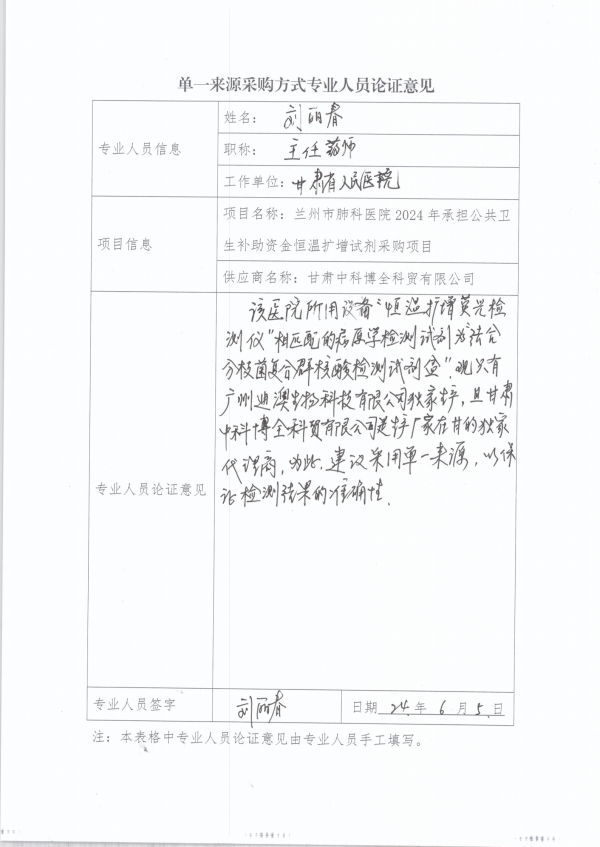 单一来源采购方式专业人员论证意见
专业人员信息
姓名：刘丽春
职称：主任药师
工作单位：甘肃省人民医院
项目信息
项目名称：兰州市肺科医院2024年承担公共卫
生补助资金恒温扩增试剂采购项目
供应商名称：甘肃中科博全科贸有限公司
专业人员论证意见
该医院所用设备“恒温扩增荧光检
测仪”相匹配的病原学检测试剂为“结合
分枝菌复合群核酸检测试剂盒”。现只有
广州迪澳生物科技有限公司独家生产，且甘肃
中科博全科贸有限公司是生产厂家在甘的独家
代理商，为此，建议采用单一来源，以保
证检测结果的准确性。
专业人员签字 刘丽春 日期 24 年 6 月 5 日
注：本表格中专业人员论证意见由专业人员手工填写。